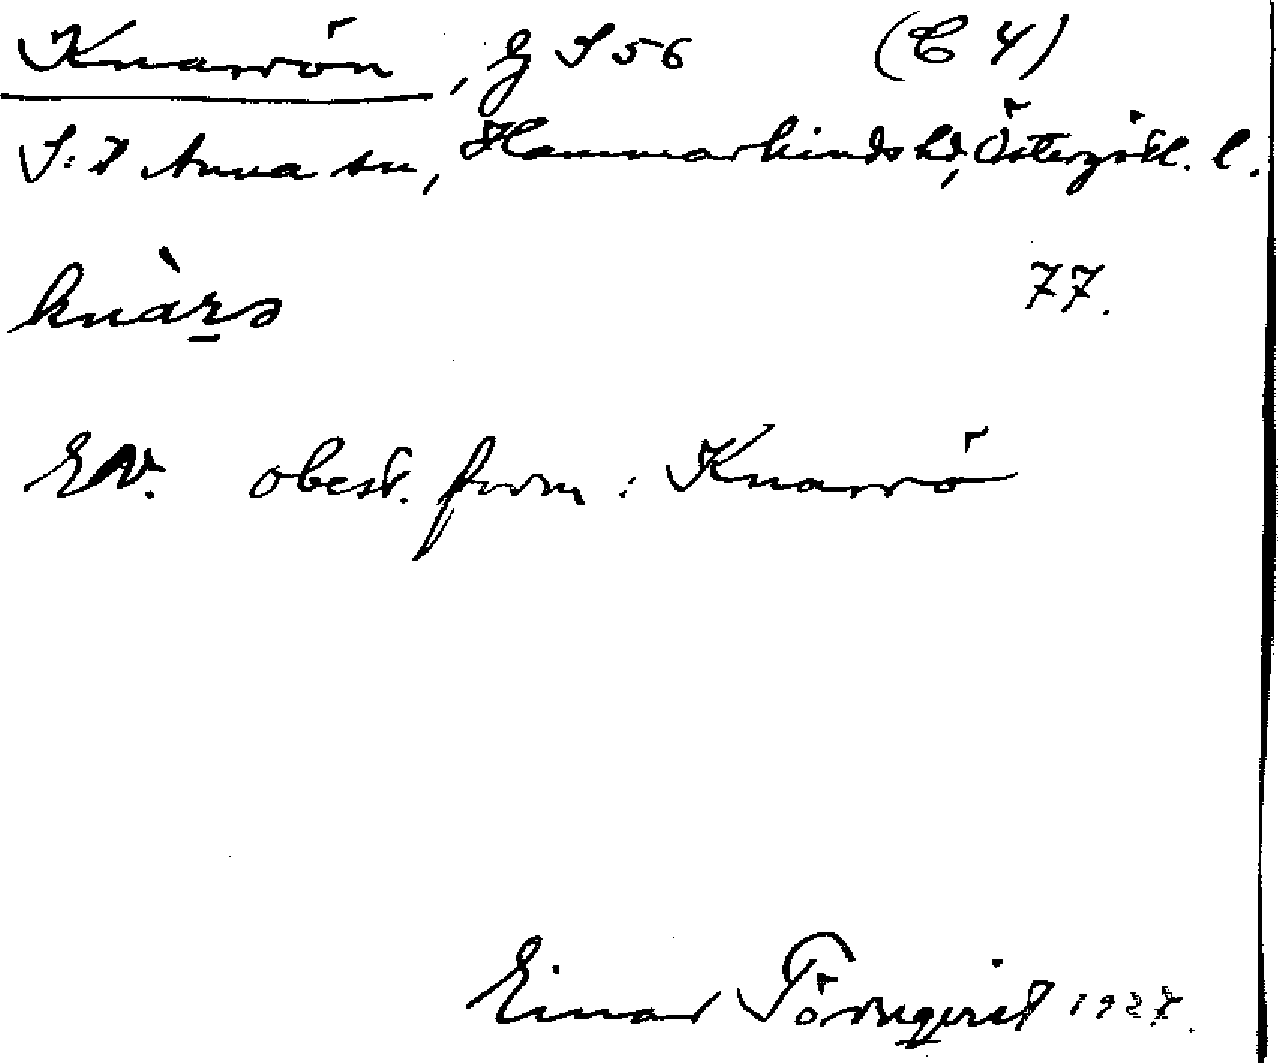 Knarrön, G S 56 (C 4)
S:t Anna sn, Hammarkinds hd, Östergötl. l.
knàrə 77.
EV. obest. form: Knarrö
Einar Törnqvist 1927.